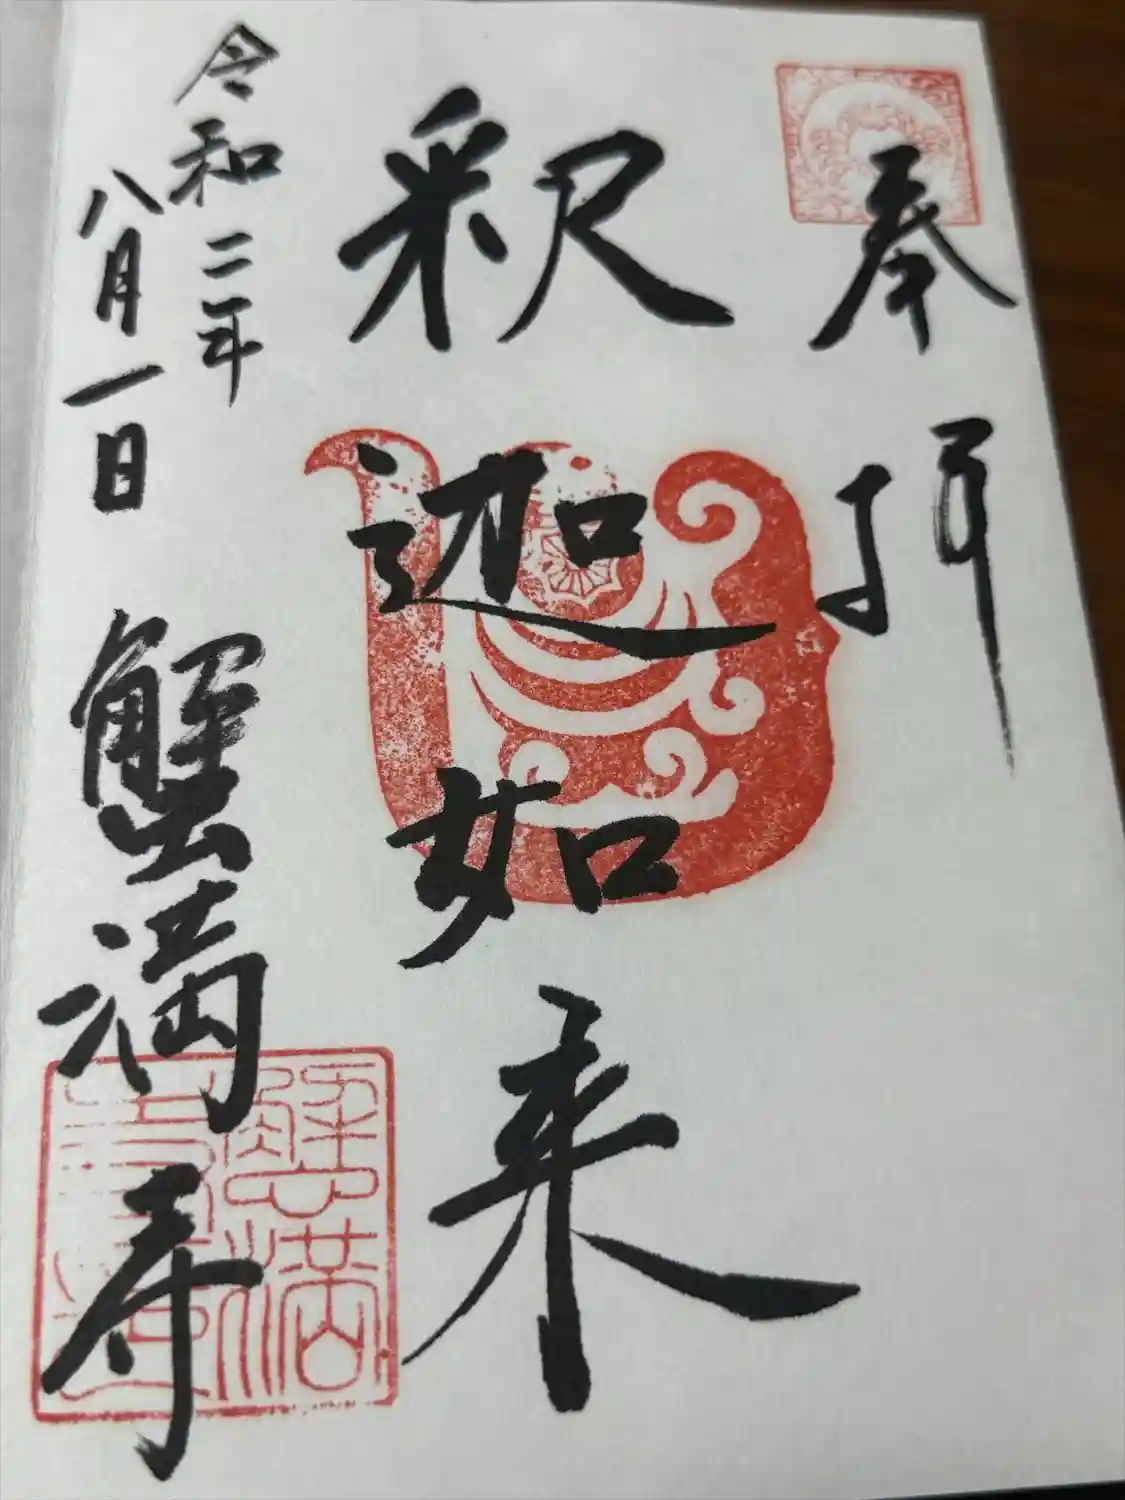 奉拝
釈迦如来
令和二年
八月一日
蟹満寺
蟹満